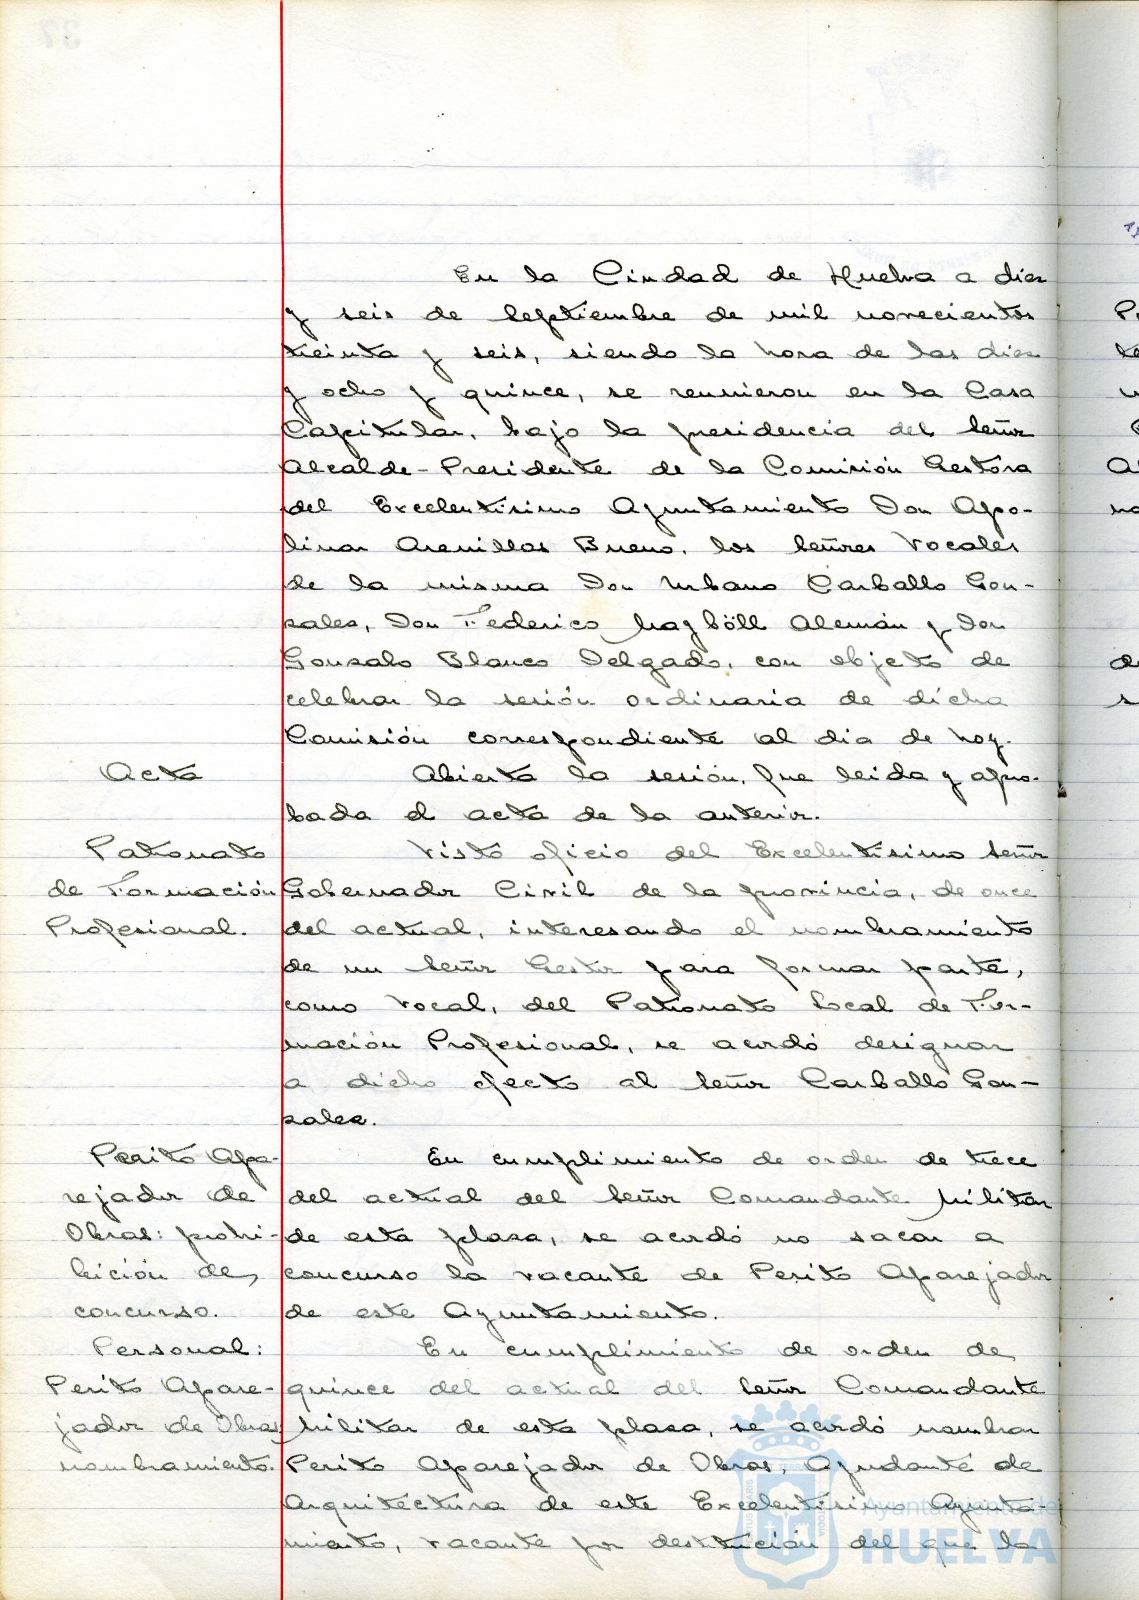 En la Ciudad de Huelva a diez
y seis de Septiembre de mil novecientos
treinta y seis, siendo la hora de las diez
y ocho y quince, se reunieron en la Casa
Capitular, bajo la presidencia del Señor
Alcalde-Presidente de la Comisión Gestora
del Excelentísimo Ayuntamiento Don Apo-
linar Arenillas Bueno, los Señores Vocales
de la misma Don Urbano Carballo Gon-
zales, Don Federico Magböll Alemán y Don
Gonzalo Blanco Delgado, con objeto de
celebrar la sesión ordinaria de dicha
Comisión correspondiente al dia de hoy.
Acta
Abierta la sesión, fue leida y apro-
bada el acta de la anterior.
Patronato
de Formación
Profesional.
Visto oficio del Excelentísimo Señor
Gobernador Civil de la provincia, de once
del actual, interesando el nombramiento
de un Señor Gestor para formar parte,
como Vocal, del Patronato Local de For-
mación Profesional, se acordó designar
a dicho efecto al Señor Carballo Gon-
zalez.
Perito Apa-
rejador de
Obras: prohi-
bición de
concurso.
En cumplimiento de orden de trece
del actual del Señor Comandante Militar
de esta plaza, se acordó no sacar a
concurso la vacante de Perito Aparejador
de este Ayuntamiento.
Personal:
Perito Apare-
jador de Obras
nombramiento.
En cumplimiento de orden de
quince del actual del Señor Comandante
Militar de esta plaza, se acordó nombrar
Perito Aparejador de Obras, Ayudante de
Arquitectura de este Excelentísimo Ayunta-
miento, vacante por destitución del que la
Ayuntamiento de
HUELVA